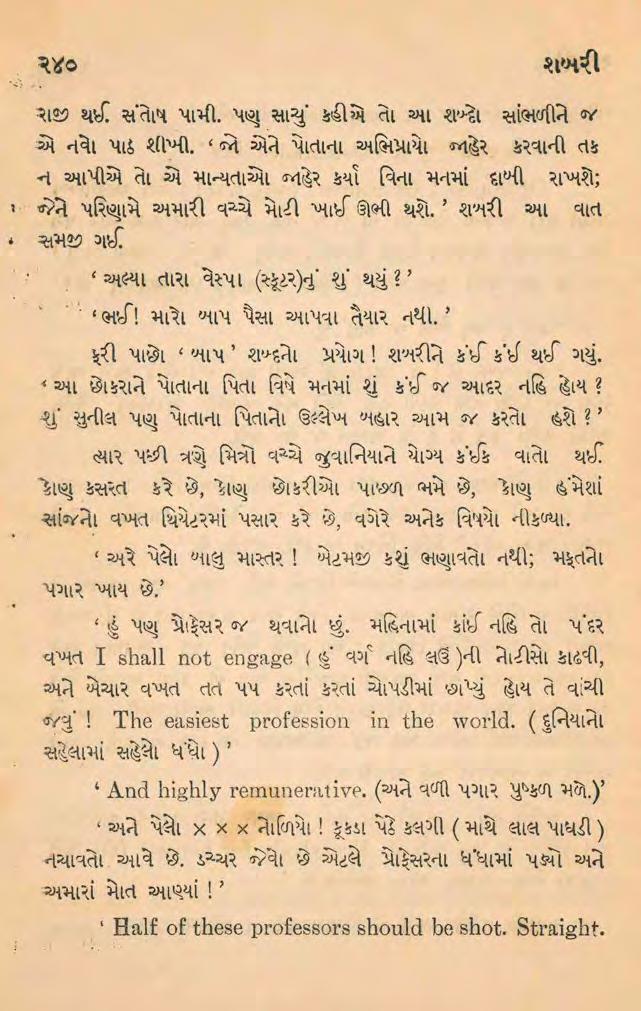 ૨૪૦ શબરી
રાજી થઈ. સંતોષ પામી. પણ સાચું કહીએ તો આ શબ્દો સાંભળીને જ
એ નવો પાઠ શીખી. ‘ જો એને પોતાના અભિપ્રાયો જાહેર કરવાની તક
ન આપીએ તો એ માન્યતાઓ જાહેર કર્યા વિના મનમાં દાબી રાખશે;
જેને પરિણામે અમારી વચ્ચે મોટી ખાઈ ઊભી થશે. ’ શબરી આ વાત
સમજી ગઈ.
‘ અલ્યા તારા વેસ્પા (સ્કૂટર)નું શું થયું ? ’
‘ ભઈ! મારો બાપ પૈસા આપવા તૈયાર નથી. ’
ફરી પાછો ‘ બાપ ’ શબ્દનો પ્રયોગ ! શબરીને કંઈ કંઈ થઈ ગયું.
‘ આ છોકરાને પોતાના પિતા વિષે મનમાં શું કંઈ જ આદર નહિ હોય ?
શું સુનીલ પણ પોતાના પિતાનો ઉલ્લેખ બહાર આમ જ કરતો હશે ? ’
ત્યાર પછી ત્રણે મિત્રો વચ્ચે જુવાનિયાને યોગ્ય કંઈક વાતો થઈ.
કોણ કસરત કરે છે, કોણ છોકરીઓ પાછળ ભમે છે, કોણ હંમેશાં
સાંજનો વખત થિયેટરમાં પસાર કરે છે, વગેરે અનેક વિષયો નીકળ્યા.
‘ અરે પેલો બાલુ માસ્તર ! બેટમજી કશું ભણાવતો નથી; મફતનો
પગાર ખાય છે.’
‘ હું પણ પ્રોફેસર જ થવાનો છું. મહિનામાં કાંઈ નહિ તો પંદર
વખત I shall not engage ( હું વર્ગ નહિ લઉં )ની નોટીસો કાઢવી,
અને બેચાર વખત તત પપ કરતાં કરતાં ચોપડીમાં છાપ્યું હોય તે વાંચી
જવું ! The easiest profession in the world. ( દુનિયાનો
સહેલામાં સહેલો ધંધો ) ’
‘ And highly remunerative. (અને વળી પગાર પુષ્કળ મળે.)’
‘ અને પેલો x x x નોળિયો ! કૂકડા પેઠે કલગી ( માથે લાલ પાઘડી )
નચાવતો આવે છે. ડચ્ચર જેવો છે એટલે પ્રોફેસરના ધંધામાં પડ્યો અને
અમારાં મોત આણ્યાં ! ’
‘ Half of these professors should be shot. Straight.